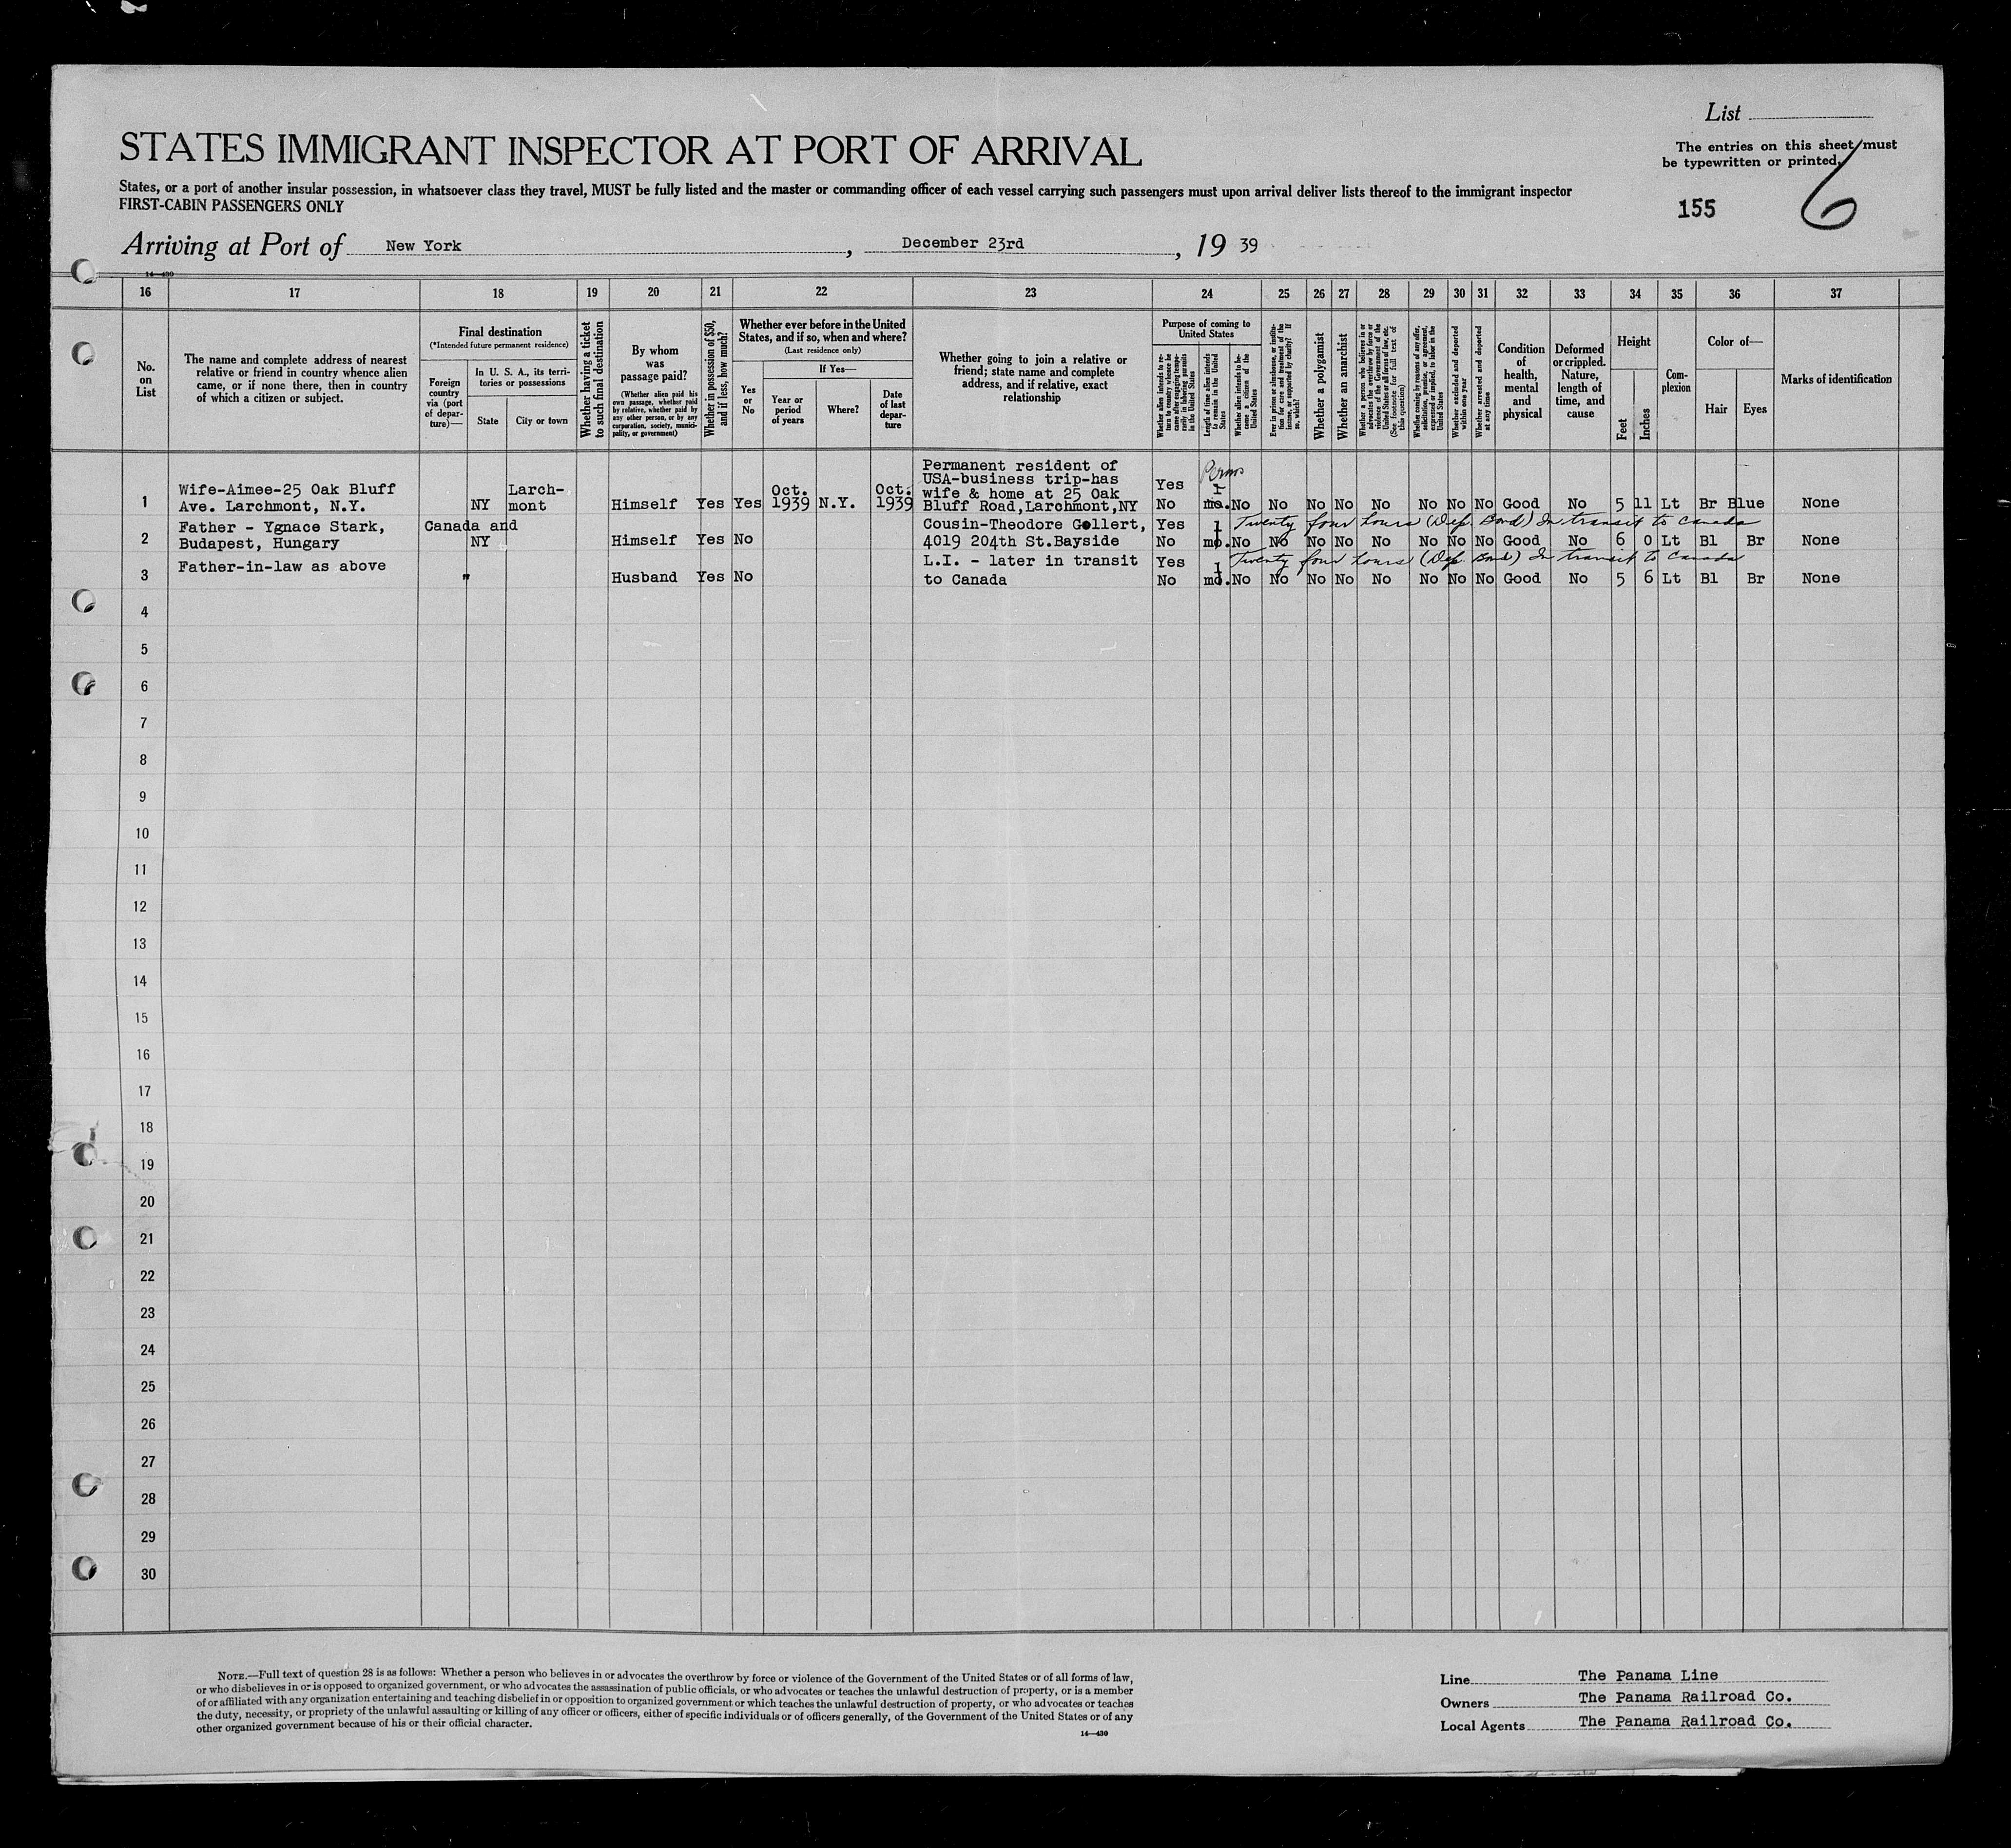 List
STATES IMMIGRANT INSPECTOR AT PORT OF ARRIVAL
The entries on this sheet must
be typewritten or printed.
States, or a port of another insular possession, in whatsoever class they travel, MUST be fully listed and the master or commanding officer of each vessel carrying such passengers must upon arrival deliver lists thereof to the immigrant inspector
FIRST-CABIN PASSENGERS ONLY
155
6
Arriving at Port of New York, December 23rd, 19 39
14—430
16 17 18 19 20 21 22 23 24 25 26 27 28 29 30 31 32 33 34 35 36 37
No. on List
The name and complete address of nearest relative or friend in country whence alien came, or if none there, then in country of which a citizen or subject.
Final destination
(*Intended future permanent residence)
Foreign country via (port of departure)—
In U. S. A., its territories or possessions
State
City or town
Whether having a ticket to such final destination
By whom was passage paid?
(Whether alien paid his own passage, whether paid by relative, whether paid by any other person, or by any corporation, society, municipality, or government)
Whether in possession of $50, and if less, how much?
Whether ever before in the United States, and if so, when and where?
(Last residence only)
Yes or No
If Yes—
Year or period of years
Where?
Date of last departure
Whether going to join a relative or friend; state name and complete address, and if relative, exact relationship
Purpose of coming to United States
Whether alien intends to return to country whence he came after engaging temporarily in laboring pursuits in the United States
Length of time alien intends to remain in the United States
Whether alien intends to become a citizen of the United States
Ever in prison or almshouse, or institution for care and treatment of the insane, or supported by charity? If so, which?
Whether a polygamist
Whether an anarchist
Whether a person who believes in or advocates the overthrow by force or violence of the Government of the United States or all forms of law, etc. (See footnote for full text of this question)
Whether coming by reasons of any offer, solicitation, promise, or agreement, expressed or implied, to labor in the United States
Whether excluded and deported within one year
Whether arrested and deported at any time
Condition of health, mental and physical
Deformed or crippled. Nature, length of time, and cause
Height
Feet
Inches
Complexion
Color of—
Hair
Eyes
Marks of identification
1 Wife-Aimee-25 Oak Bluff Ave. Larchmont, N.Y. NY Larchmont Himself Yes Yes Oct. 1939 N.Y. Oct. 1939 Permanent resident of USA-business trip-has wife & home at 25 Oak Bluff Road,Larchmont,NY Yes No Perm 1 mo. No No No No No No No No Good No 5 11 Lt Br Blue None
2 Father - Ygnace Stark, Budapest, Hungary Canada and NY Himself Yes No Cousin-Theodore Gollert, 4019 204th St.Bayside Yes No 1 mo. Twenty four hours (Dep. Bond) In transit to Canada No No No No No No No No Good No 6 0 Lt Bl Br None
3 Father-in-law as above " Husband Yes No L.I. - later in transit to Canada Yes No 1 mo. Twenty four hours (Dep. Bond) In transit to Canada No No No No No No No No Good No 5 6 Lt Bl Br None
4
5
6
7
8
9
10
11
12
13
14
15
16
17
18
19
20
21
22
23
24
25
26
27
28
29
30
NOTE.—Full text of question 28 is as follows: Whether a person who believes in or advocates the overthrow by force or violence of the Government of the United States or of all forms of law,
or who disbelieves in or is opposed to organized government, or who advocates the assassination of public officials, or who advocates or teaches the unlawful destruction of property, or is a member
of or affiliated with any organization entertaining and teaching disbelief in or opposition to organized government or which teaches the unlawful destruction of property, or who advocates or teaches
the duty, necessity, or propriety of the unlawful assaulting or killing of any officer or officers, either of specific individuals or of officers generally, of the Government of the United States or of any
other organized government because of his or their official character.
14—430
Line The Panama Line
Owners The Panama Railroad Co.
Local Agents The Panama Railroad Co.